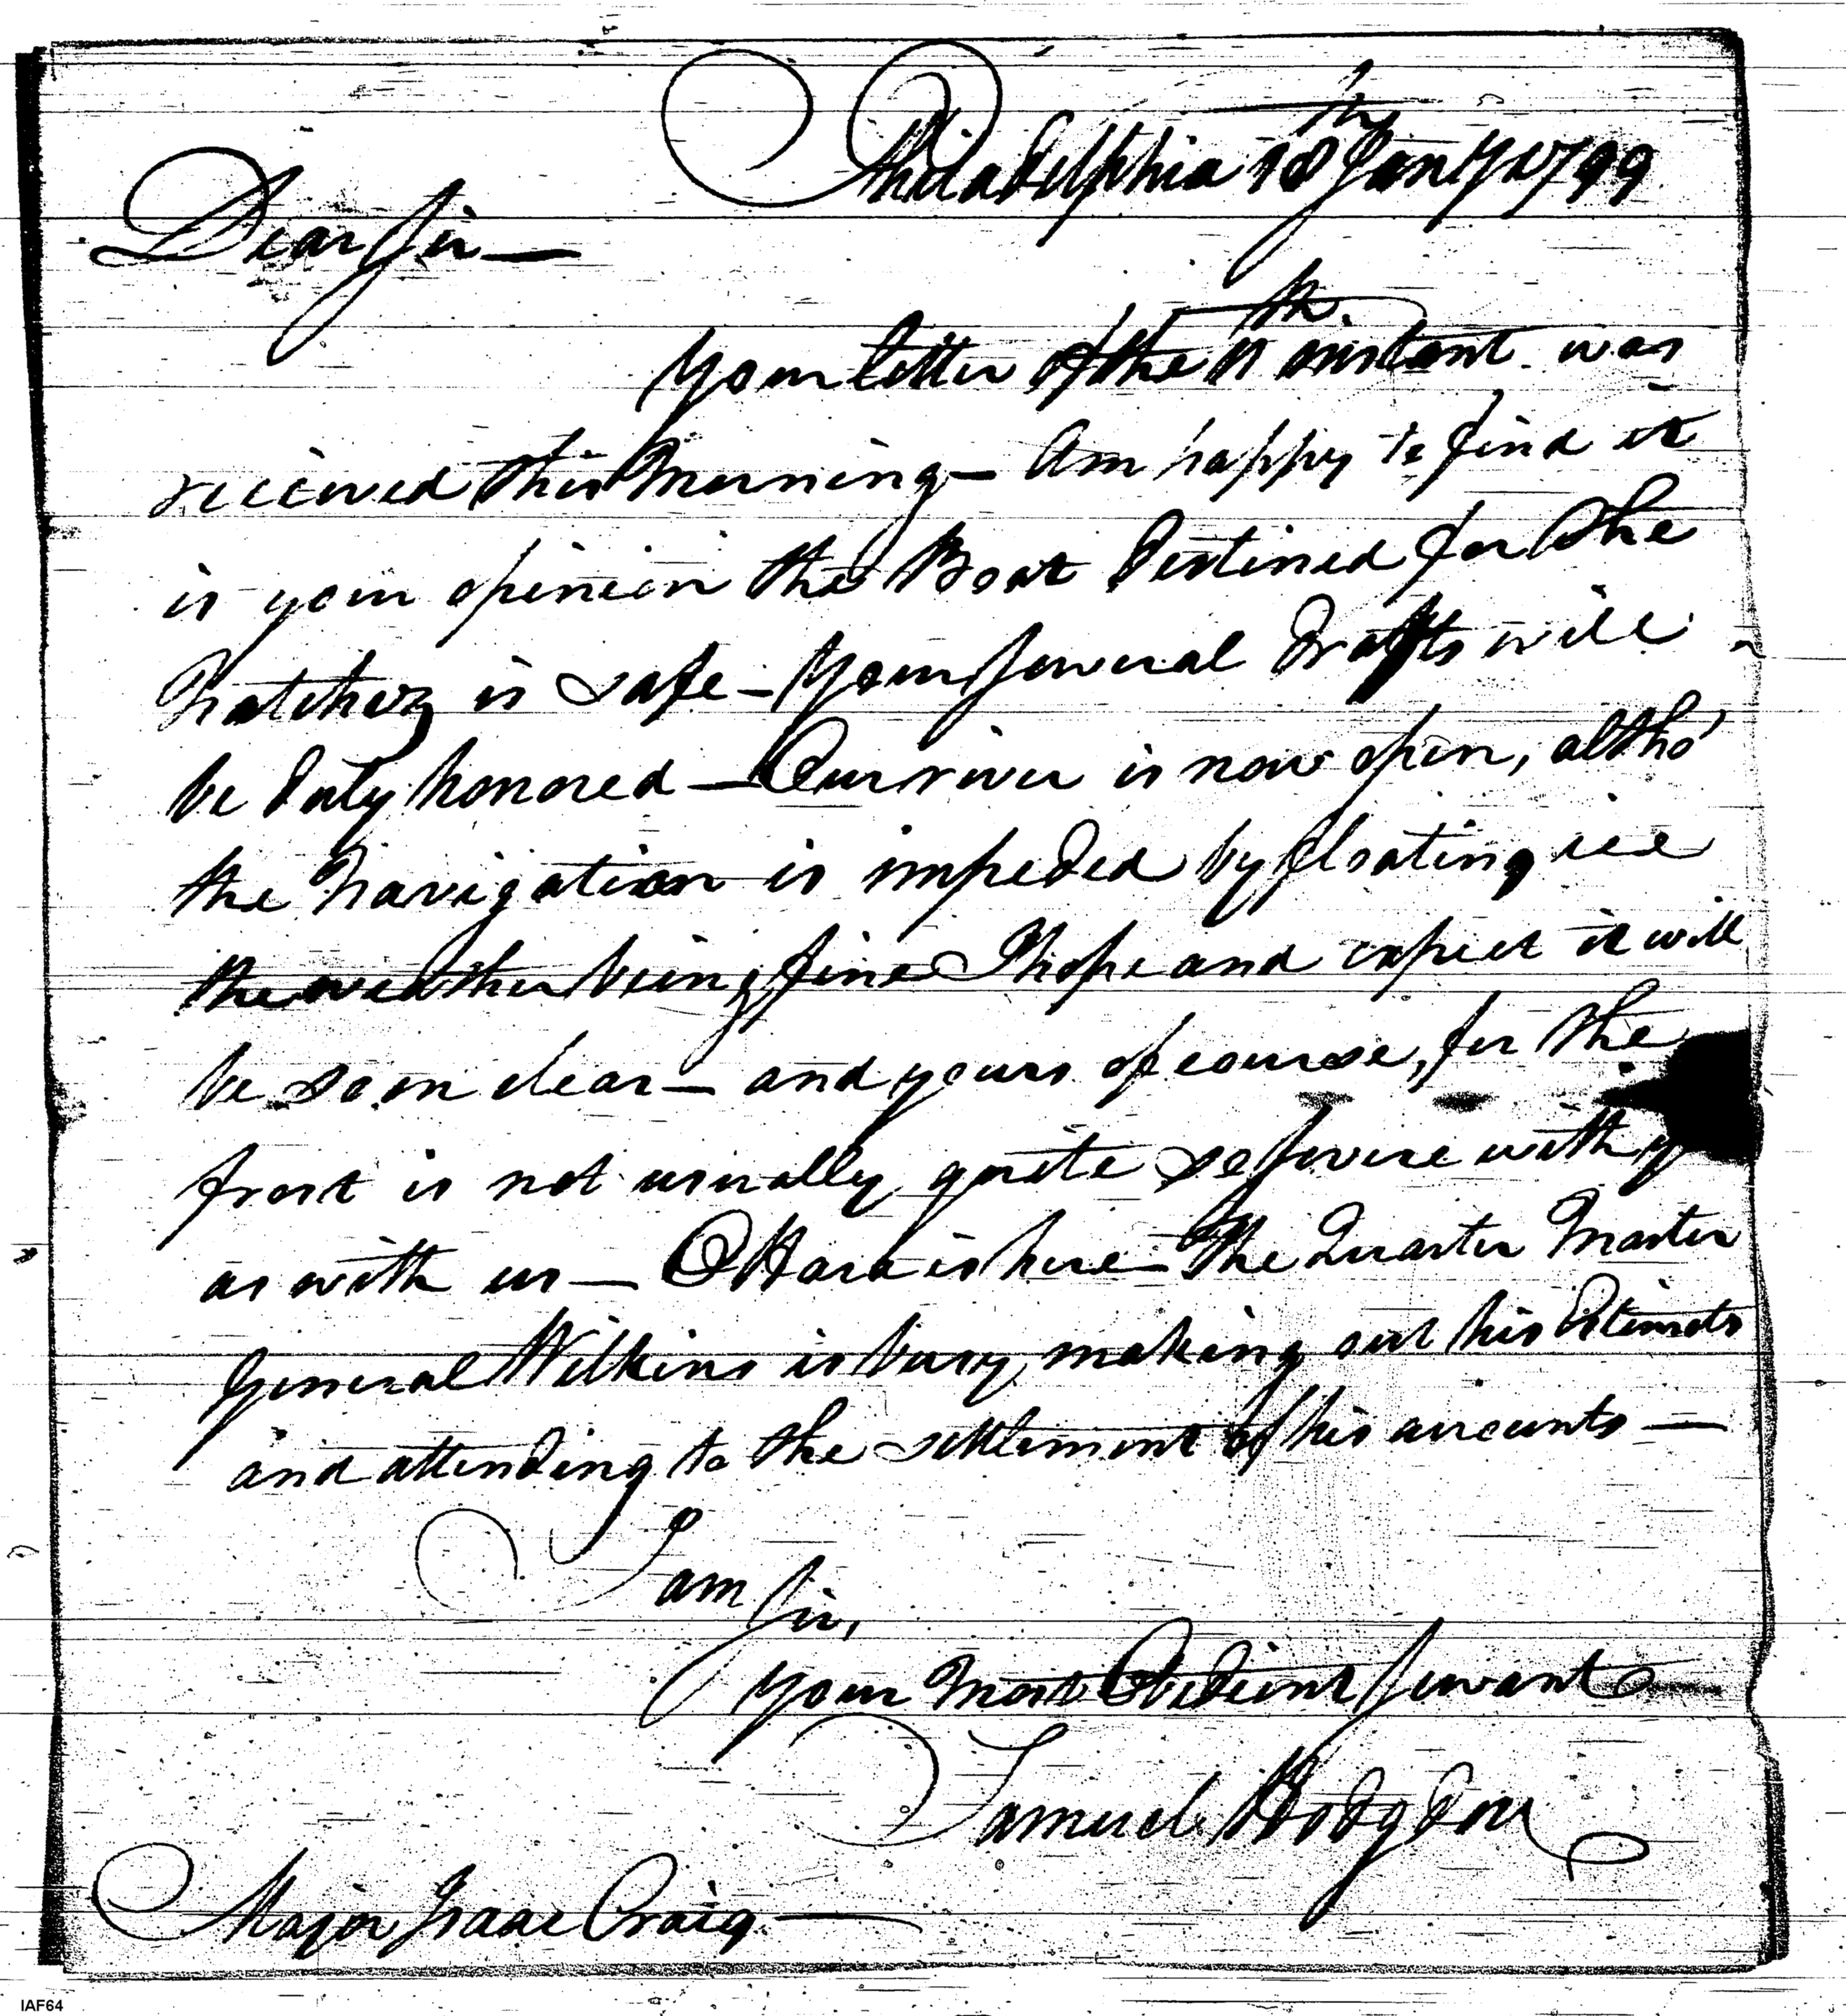 Philadelphia 18th Jany 1799
Dear Sir —
Your letter of the 11th instant was
received this Morning — Am happy to find it
is your opinion the Boat destined for the
Natchez is safe — Your several drafts will
be duly honored — Our river is now open, altho'
the Navigation is impeded by floating ice
the weather being fine I hope and expect it will
be soon clear — and yours of course, for the
frost is not usually quite so severe with y
as with us — O Hara is here — The Quarter Master
General Wilkins is busy making out his Estimates
and attending to the settlement of his accounts —
I am
Sir,
Your Most Obedient Servant
Samuel Hodgdon
Major Isaac Craig —
IAF64